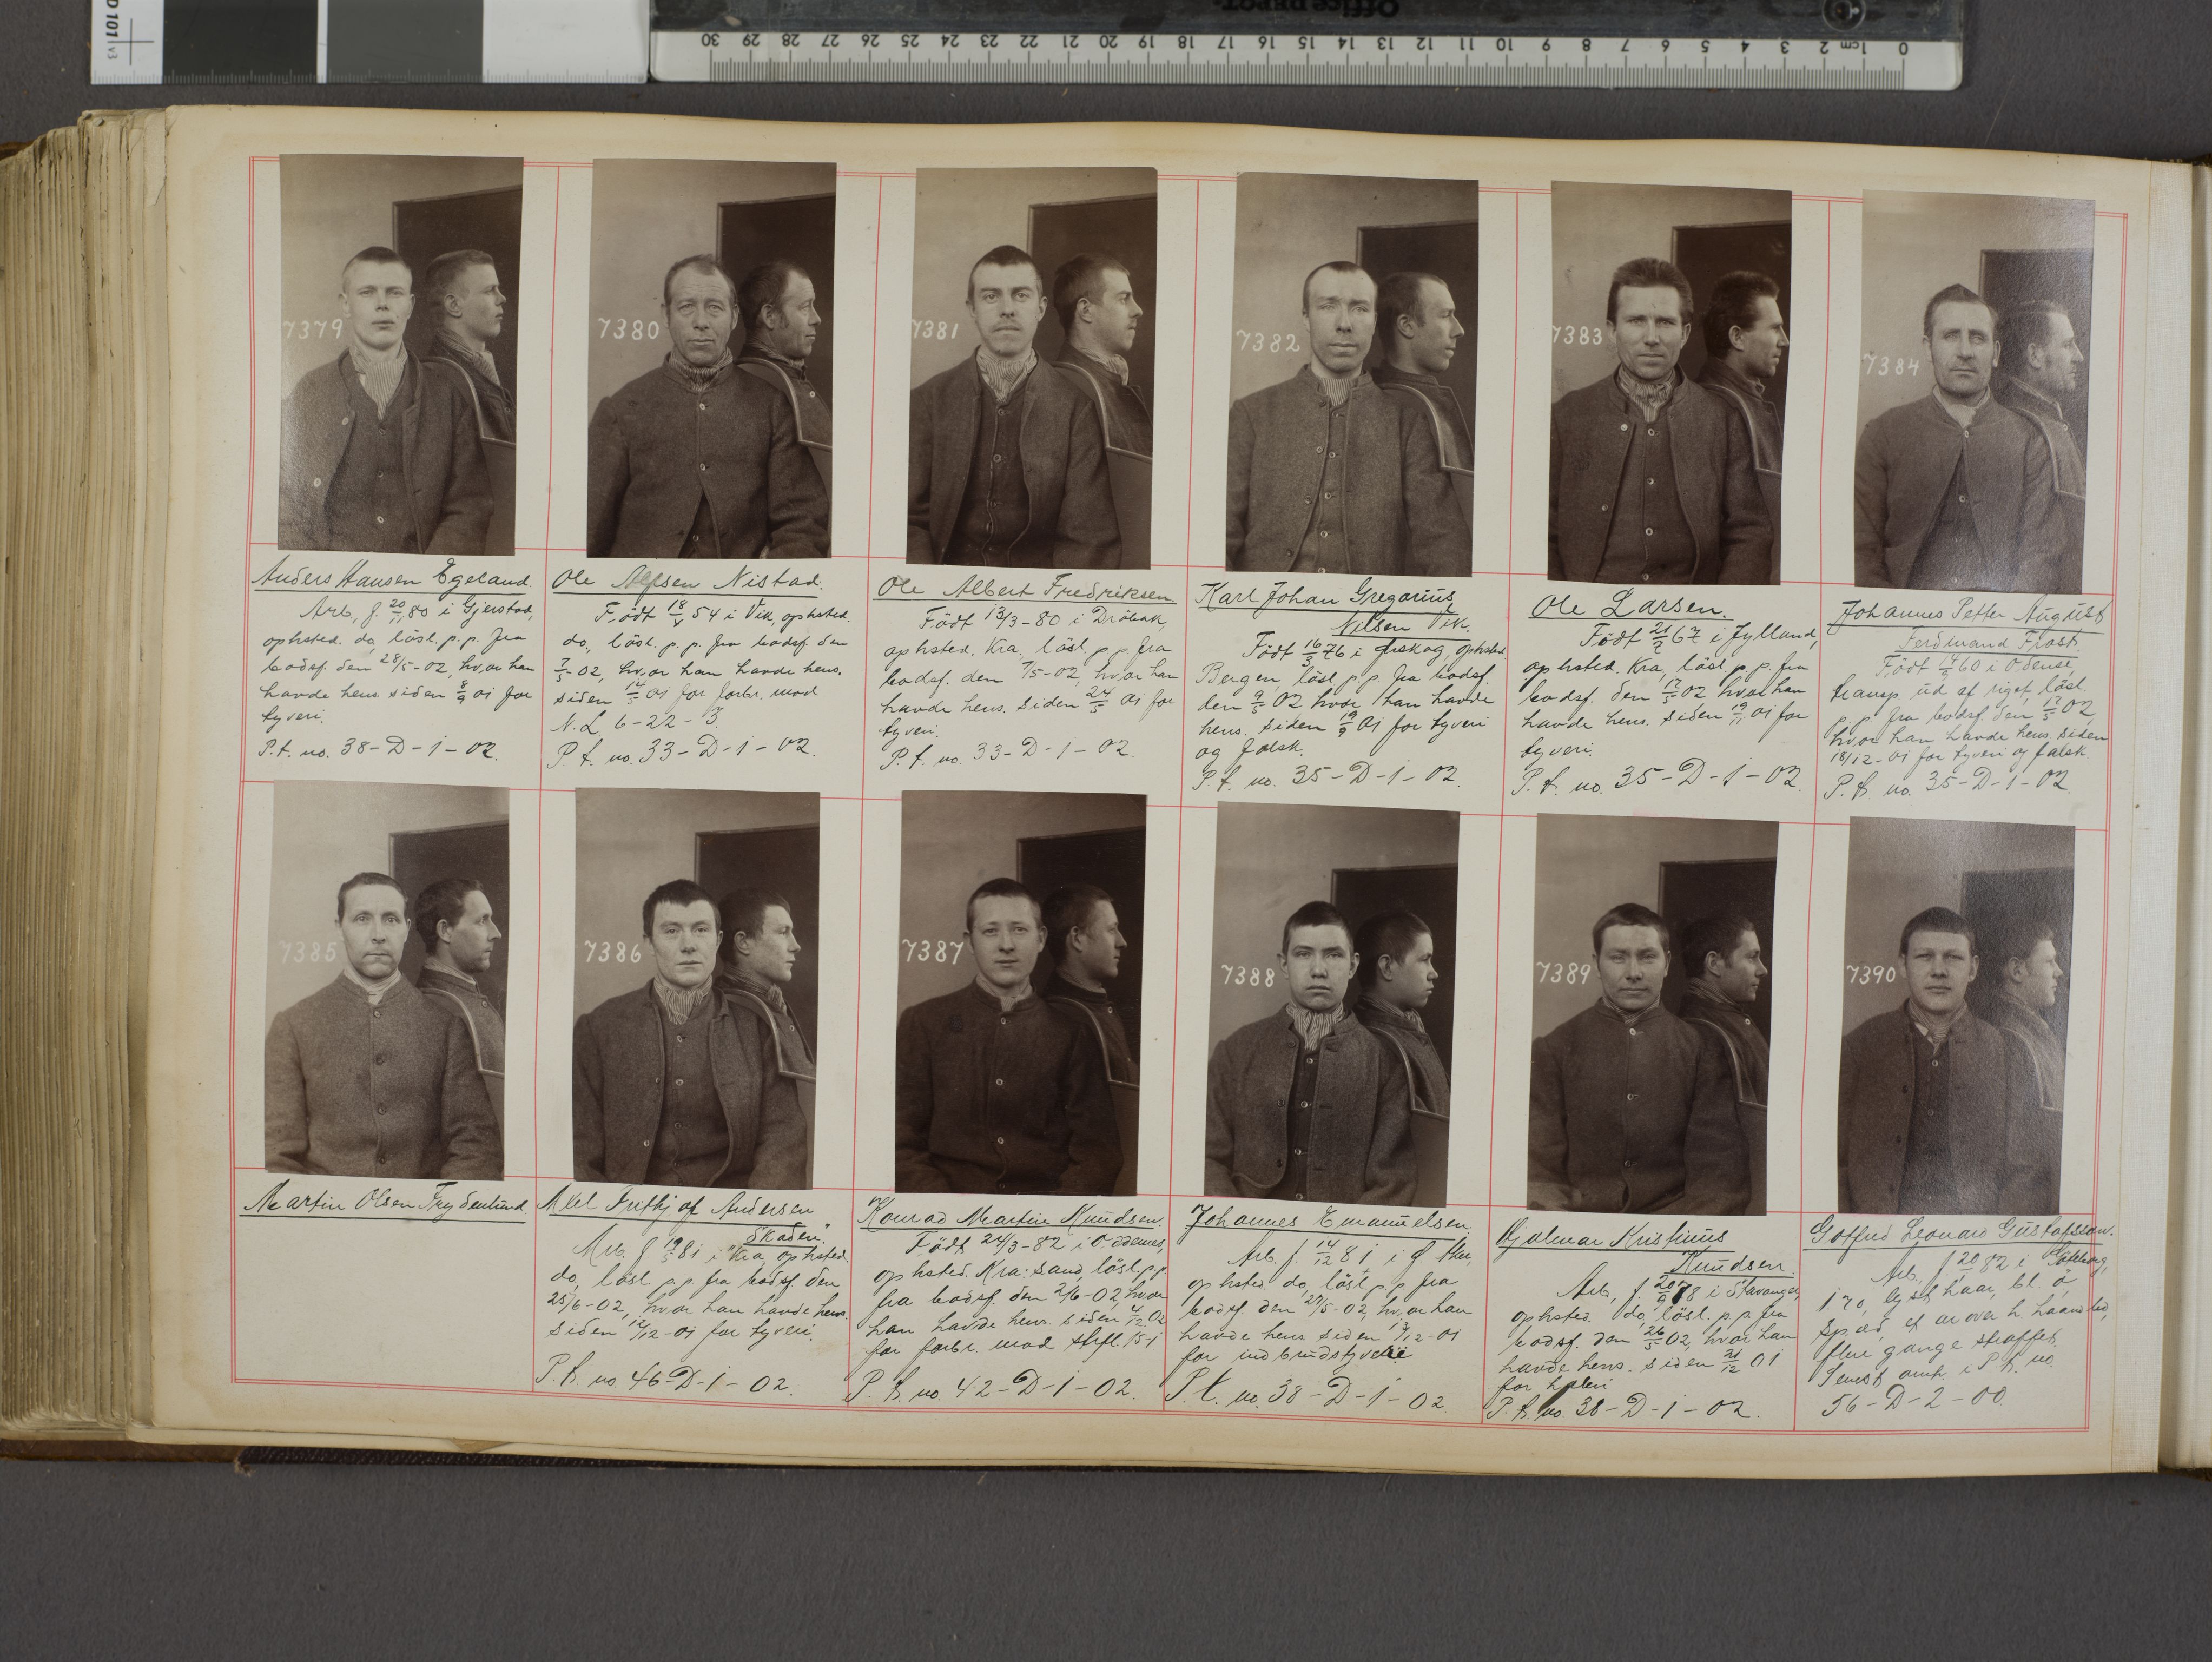 D 101 v3
Office DEPOT
30 29 28 27 26 25 24 23 22 21 20 19 18 17 16 15 14 13 12 11 10 9 8 7 6 5 4 3 2 1cm 0
7379
Anders Hansen Egeland.
Arb., f. 20/11 80 i Gjerstad,
ophsted. do, lösl. p.p. fra
bodsf. den 28/5-02, hvor han
havde hens. siden 8/9 01 for
tyveri.
P.t. no. 38-D-1-02.
7380
Ole Alfsen Nistad.
Födt 18/4 54 i Vik, ophsted.
do., lösl. p.p. fra bodsf. den
7/5-02, hvor han havde hens.
siden 14/5 01 for forbr. mod
N.L 6-22-3.
P.t. no. 33-D-1-02.
7381
Ole Albert Fredriksen
Födt 13/3-80 i Dröbak,
ophsted. Kra., lösl. p.p. fra
bodsf. den 7/5-02, hvor han
havde hens. siden 24/5 01 for
tyveri.
P.t. no. 33-D-1-02.
7382
Karl Johan Gregorius
Nilsen Vik.
Födt 16/3 76 i Ørskog, ophsted.
Bergen, lösl. p.p. fra bodsf.
den 9/5 02 hvor han havde
hens. siden 19/9 01 for tyveri
og falsk.
P.t. no. 35-D-1-02.
7383
Ole Larsen.
Födt 21/2 67 i Jylland,
ophsted. Kra, lösl. p.p. fra
bodsf. den 12/5 02 hvor han
havde hens. siden 19/11 01 for
tyveri.
P.t. no. 35-D-1-02.
7384
Johannes Petter August
Ferdinand Frost.
Födt 14/9 60 i Odense
transp. ud af riget, lösl.
p.p. fra bodsf. den 12/5 02,
hvor han havde hens. siden
18/12-01 for tyveri og falsk.
P.t. no. 35-D-1-02
7385
Martin Olsen Frydenlund.
7386
Axel Frithjof Andersen
"Skaden".
Arb. f. 19/5 81 i Kra, ophsted.
do, lösl. p.p. fra bodsf. den
25/6-02, hvor han havde hens.
siden 12/12-01 for tyveri.
P.t. no. 46-D-1-02.
7387
Konrad Martin Knudsen.
Födt 24/3-82 i Oddernes,
ophsted. Kra:sand, lösl. p.p.
fra bodsf. den 2/6-02, hvor
han havde hens. siden 4/12 02
for forbr. mod strfl. 15-1
P.t. no. 42-D-1-02.
7388
Johannes Emanuelsen.
Arb. f. 14/12 81, i
ophsted. do, lösl. p.p. fra
bodsf. den 27/5-02, hvor han
havde hens. siden 13/12-01
for indbrudstyveri
P.t. no. 38-D-1-02.
7389
Hjalmar Kristinus
Knudsen.
Arb., f. 20/9 78 i Stavanger,
ophsted. do, lösl. p.p. fra
bodsf. den 26/5 02, hvor han
havde hens. siden 21/12 01
for hæleri
P.t. no. 38-D-1-02.
7390
Gotfred Leonard Gustafsson.
Arb., f. 20 82 i Göteborg,
170, lyst haar, bl. ö,
sp. ad, et ar over h. haandled,
flere gange straffet.
Senest omh. i P.t. no.
56-D-2-00.